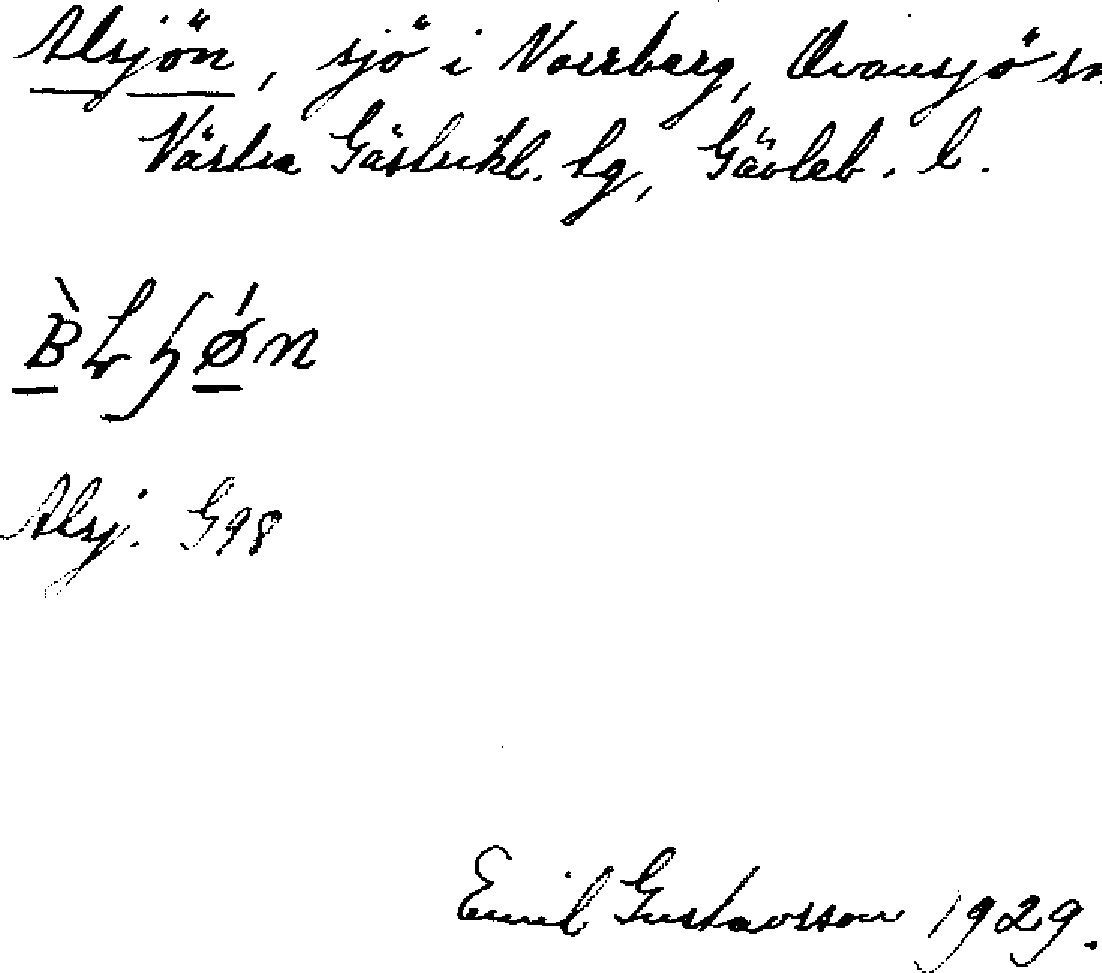 Alsjön, sjö i Norrberg, Ovansjö sn
Västra Gästrikl. tg, Gävleb. l.
Alsj. G98
Emil Gustavsson 1929.